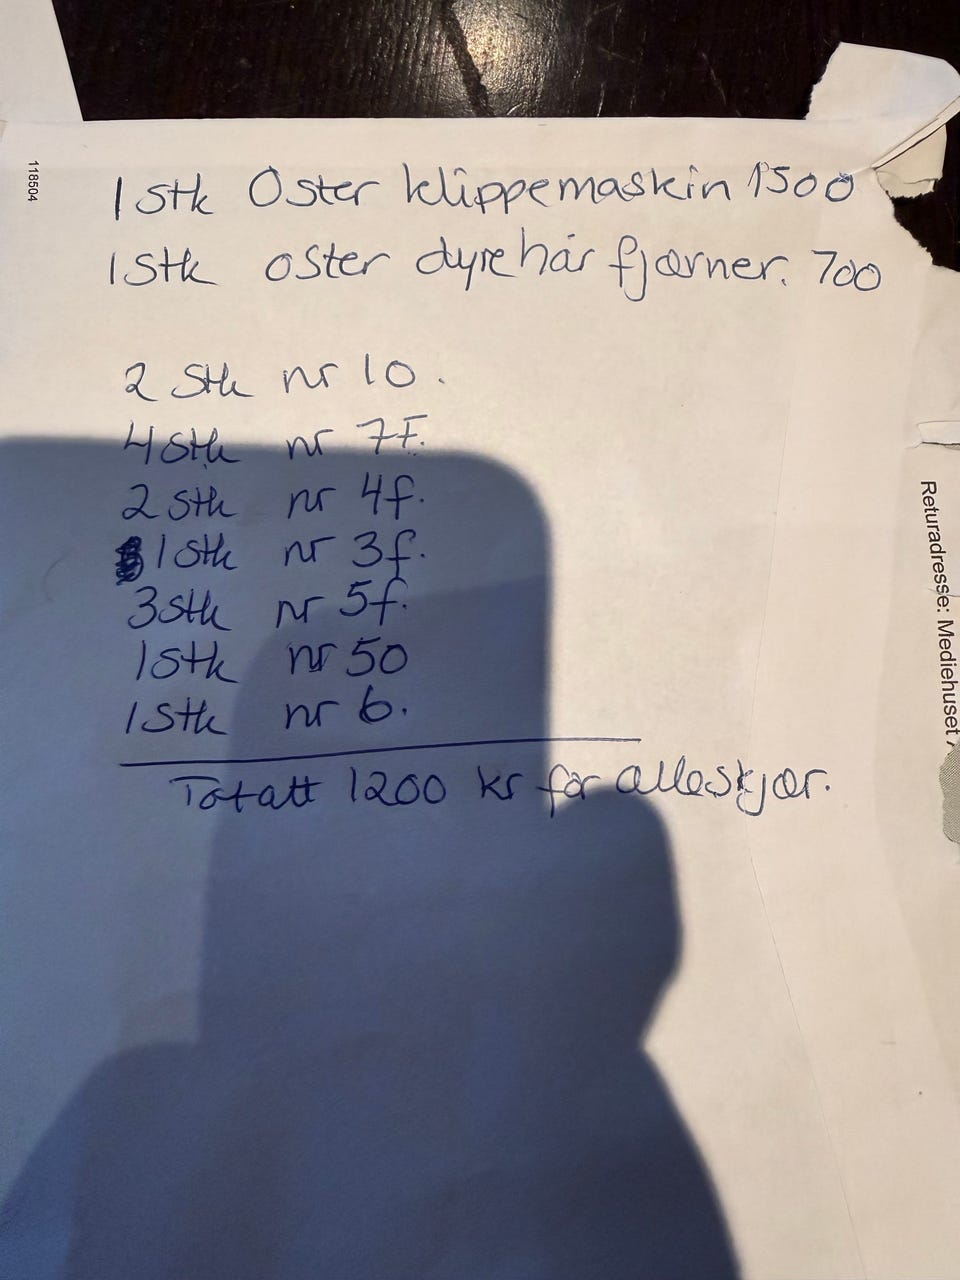 118504
1 stk Oster klippemaskin 1500
1 stk oster dyrehår fjærner. 700
2 stk nr 10.
4 stk nr 7F.
2 stk nr 4f.
1 stk nr 3f.
3 stk nr 5f.
1 stk nr 50
1 stk nr 6.
Totatt 1200 kr før alle skjær.
Returadresse: Mediehuset